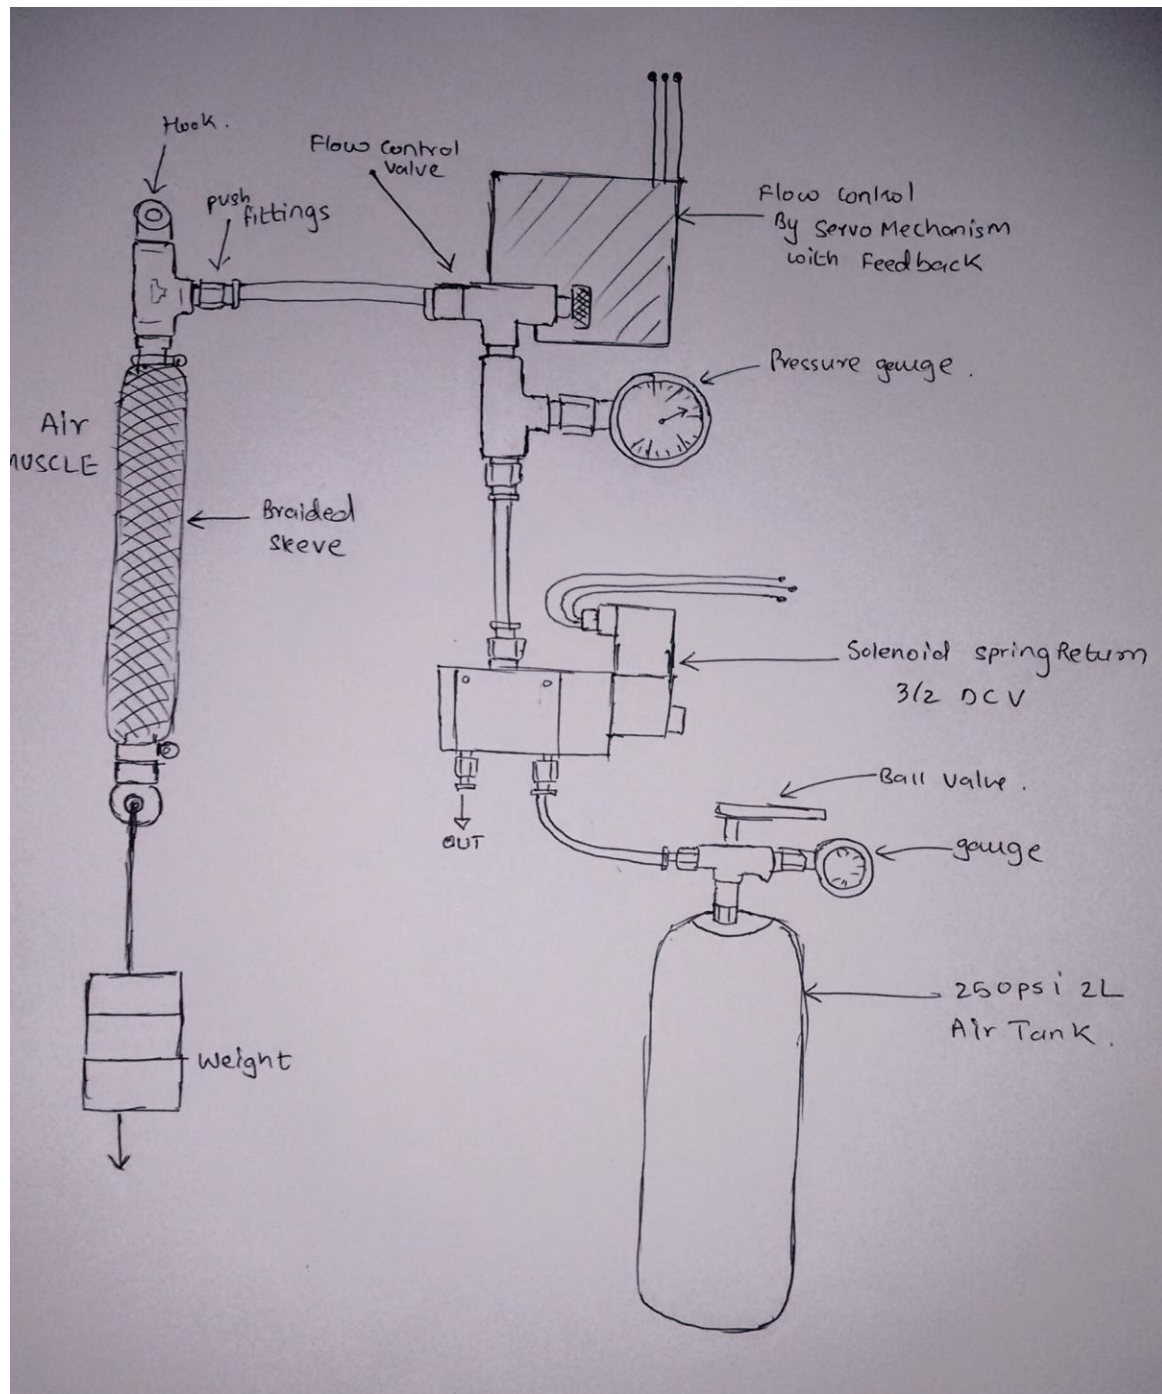 Hook.
push
fittings
Flow control
valve
Flow control
By Servo Mechanism
with Feedback
Pressure gauge.
Air
MUSCLE
Braided
Skeve
Solenoid spring Return
3/2 DCV
Ball valve.
OUT
gauge
250psi 2L
Air Tank.
Weight